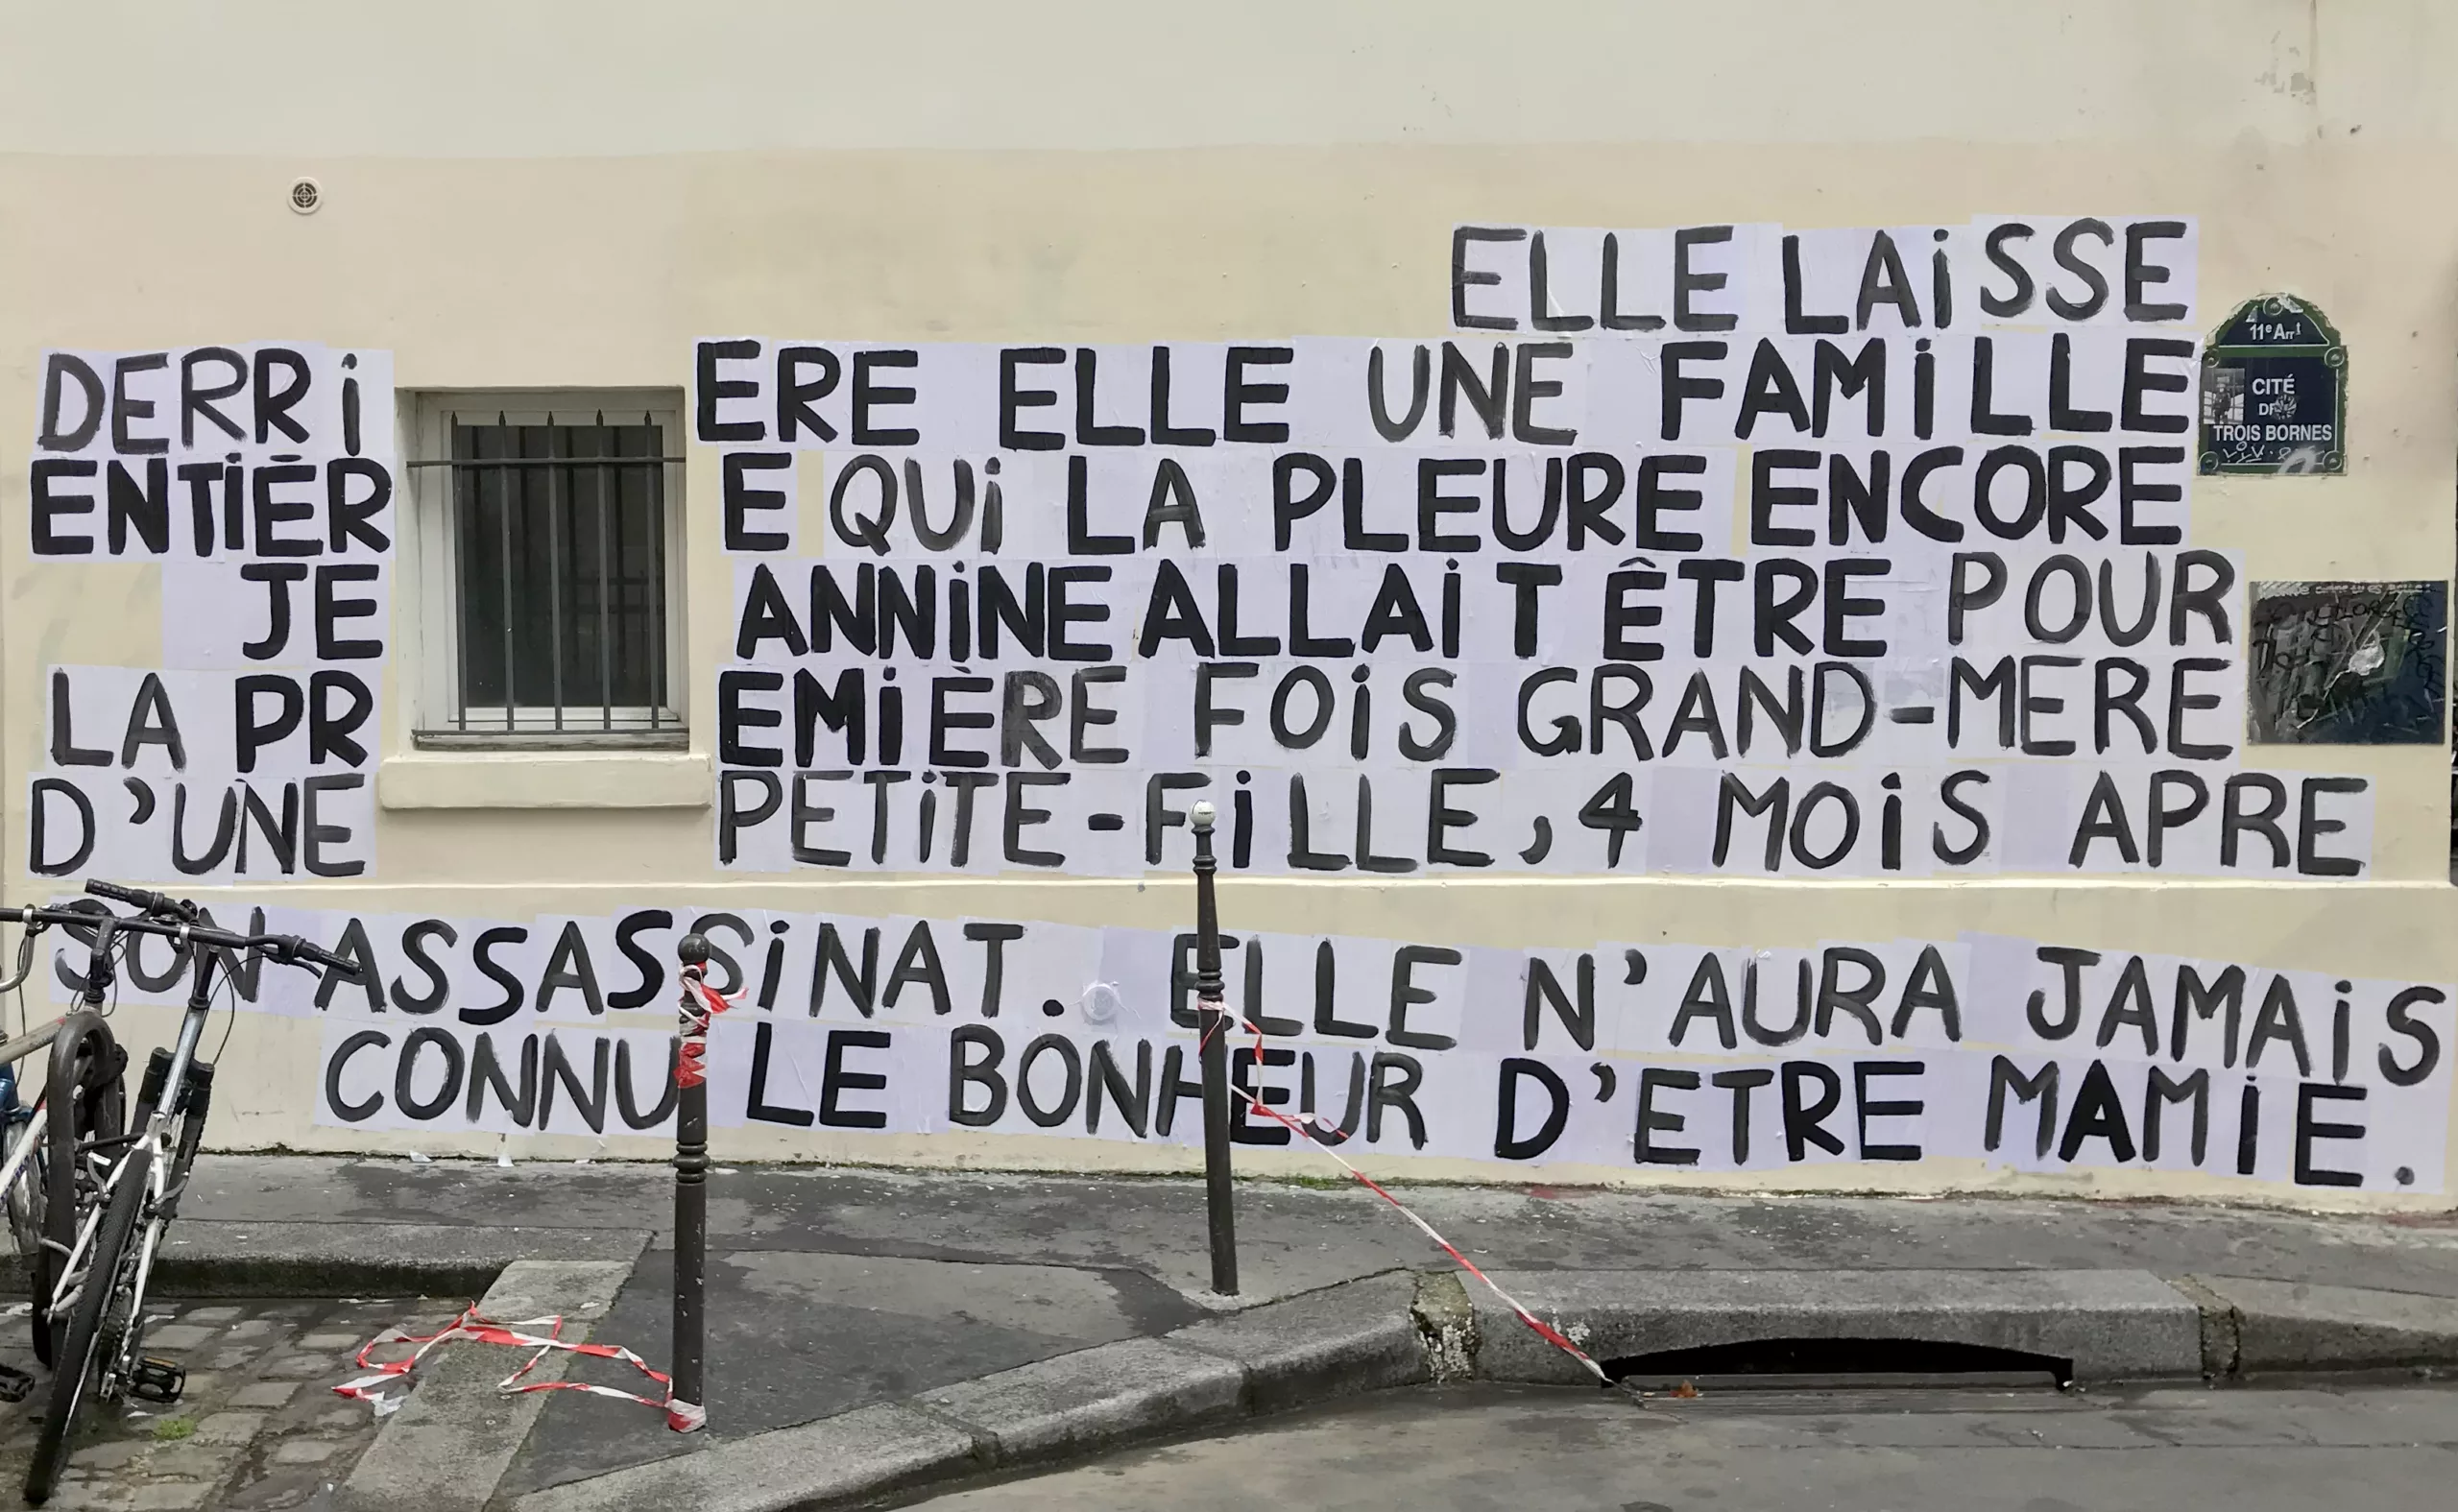 ELLE LAiSSE
DERRiERE ELLE UNE FAMiLLE
ENTiÈRE QUi LA PLEURE ENCORE
JEANNiNE ALLAiT ÊTRE POUR
LA PREMiÈRE FOiS GRAND-MERE
D'UNE PETiTE-FiLLE, 4 MOiS APRE
SON ASSASSiNAT. ELLE N'AURA JAMAiS
CONNU LE BONHEUR D'ETRE MAMiE.
11e Arrt
CITÉ
DES
TROIS BORNES